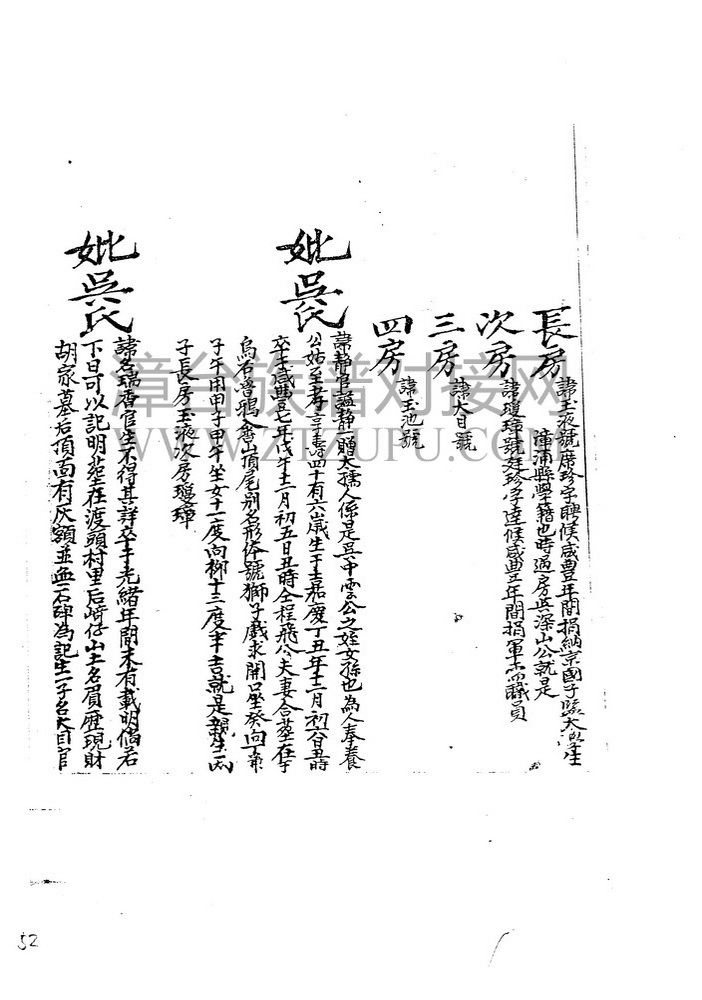 長房 諱玉液號席珍字聘候咸豐年間捐納京國子監太學生
漳浦縣學籍也時過房吳深山公就是
次房 諱瓊璋號廷珍字達候咸豐年間捐軍 職員
三房 諱大目號
四房 諱玉池號
妣吳氏 諱靜官諡靜一贈太孺人係是吳中雲公之姪女孫也為人奉養
公姑至孝享壽四十有六歲生于嘉慶丁丑年十二月初 日丑時
卒于咸豐七年戊午十二月初五日丑時仝程飛公夫妻合葬在
烏石 鴉 山頂尾別名形体號獅子戲求開口坐癸向丁兼
子午用甲子甲午坐女十一度向柳十三度半吉就是親生二
子長房玉液次房瓊璋
妣吳氏 諱名瑞香官生不得其詳卒于光緒年間未有載明倘若
下日可以記明葬在渡頭村里后崎仔山土名眉歷現財
胡家墓后頂面有灰額並血石碑為記生一子名大目官
漳台族谱对接网
WWW.ZTZUPU.COM
52